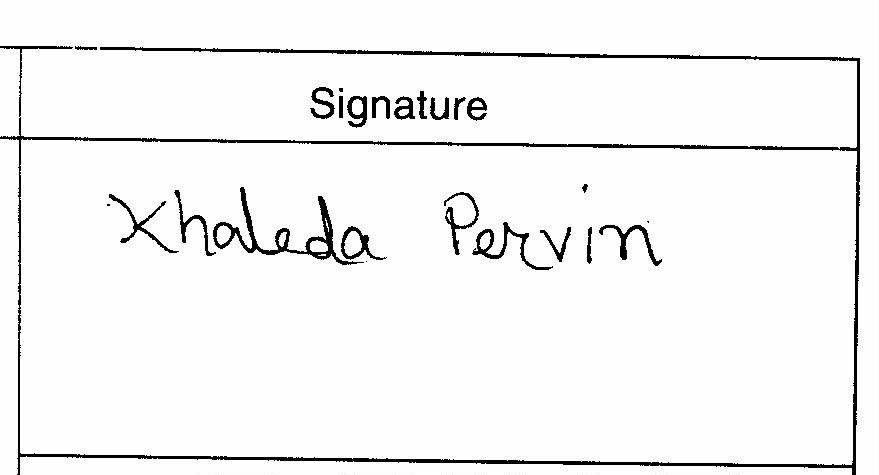 Signature
Khaleda Pervin